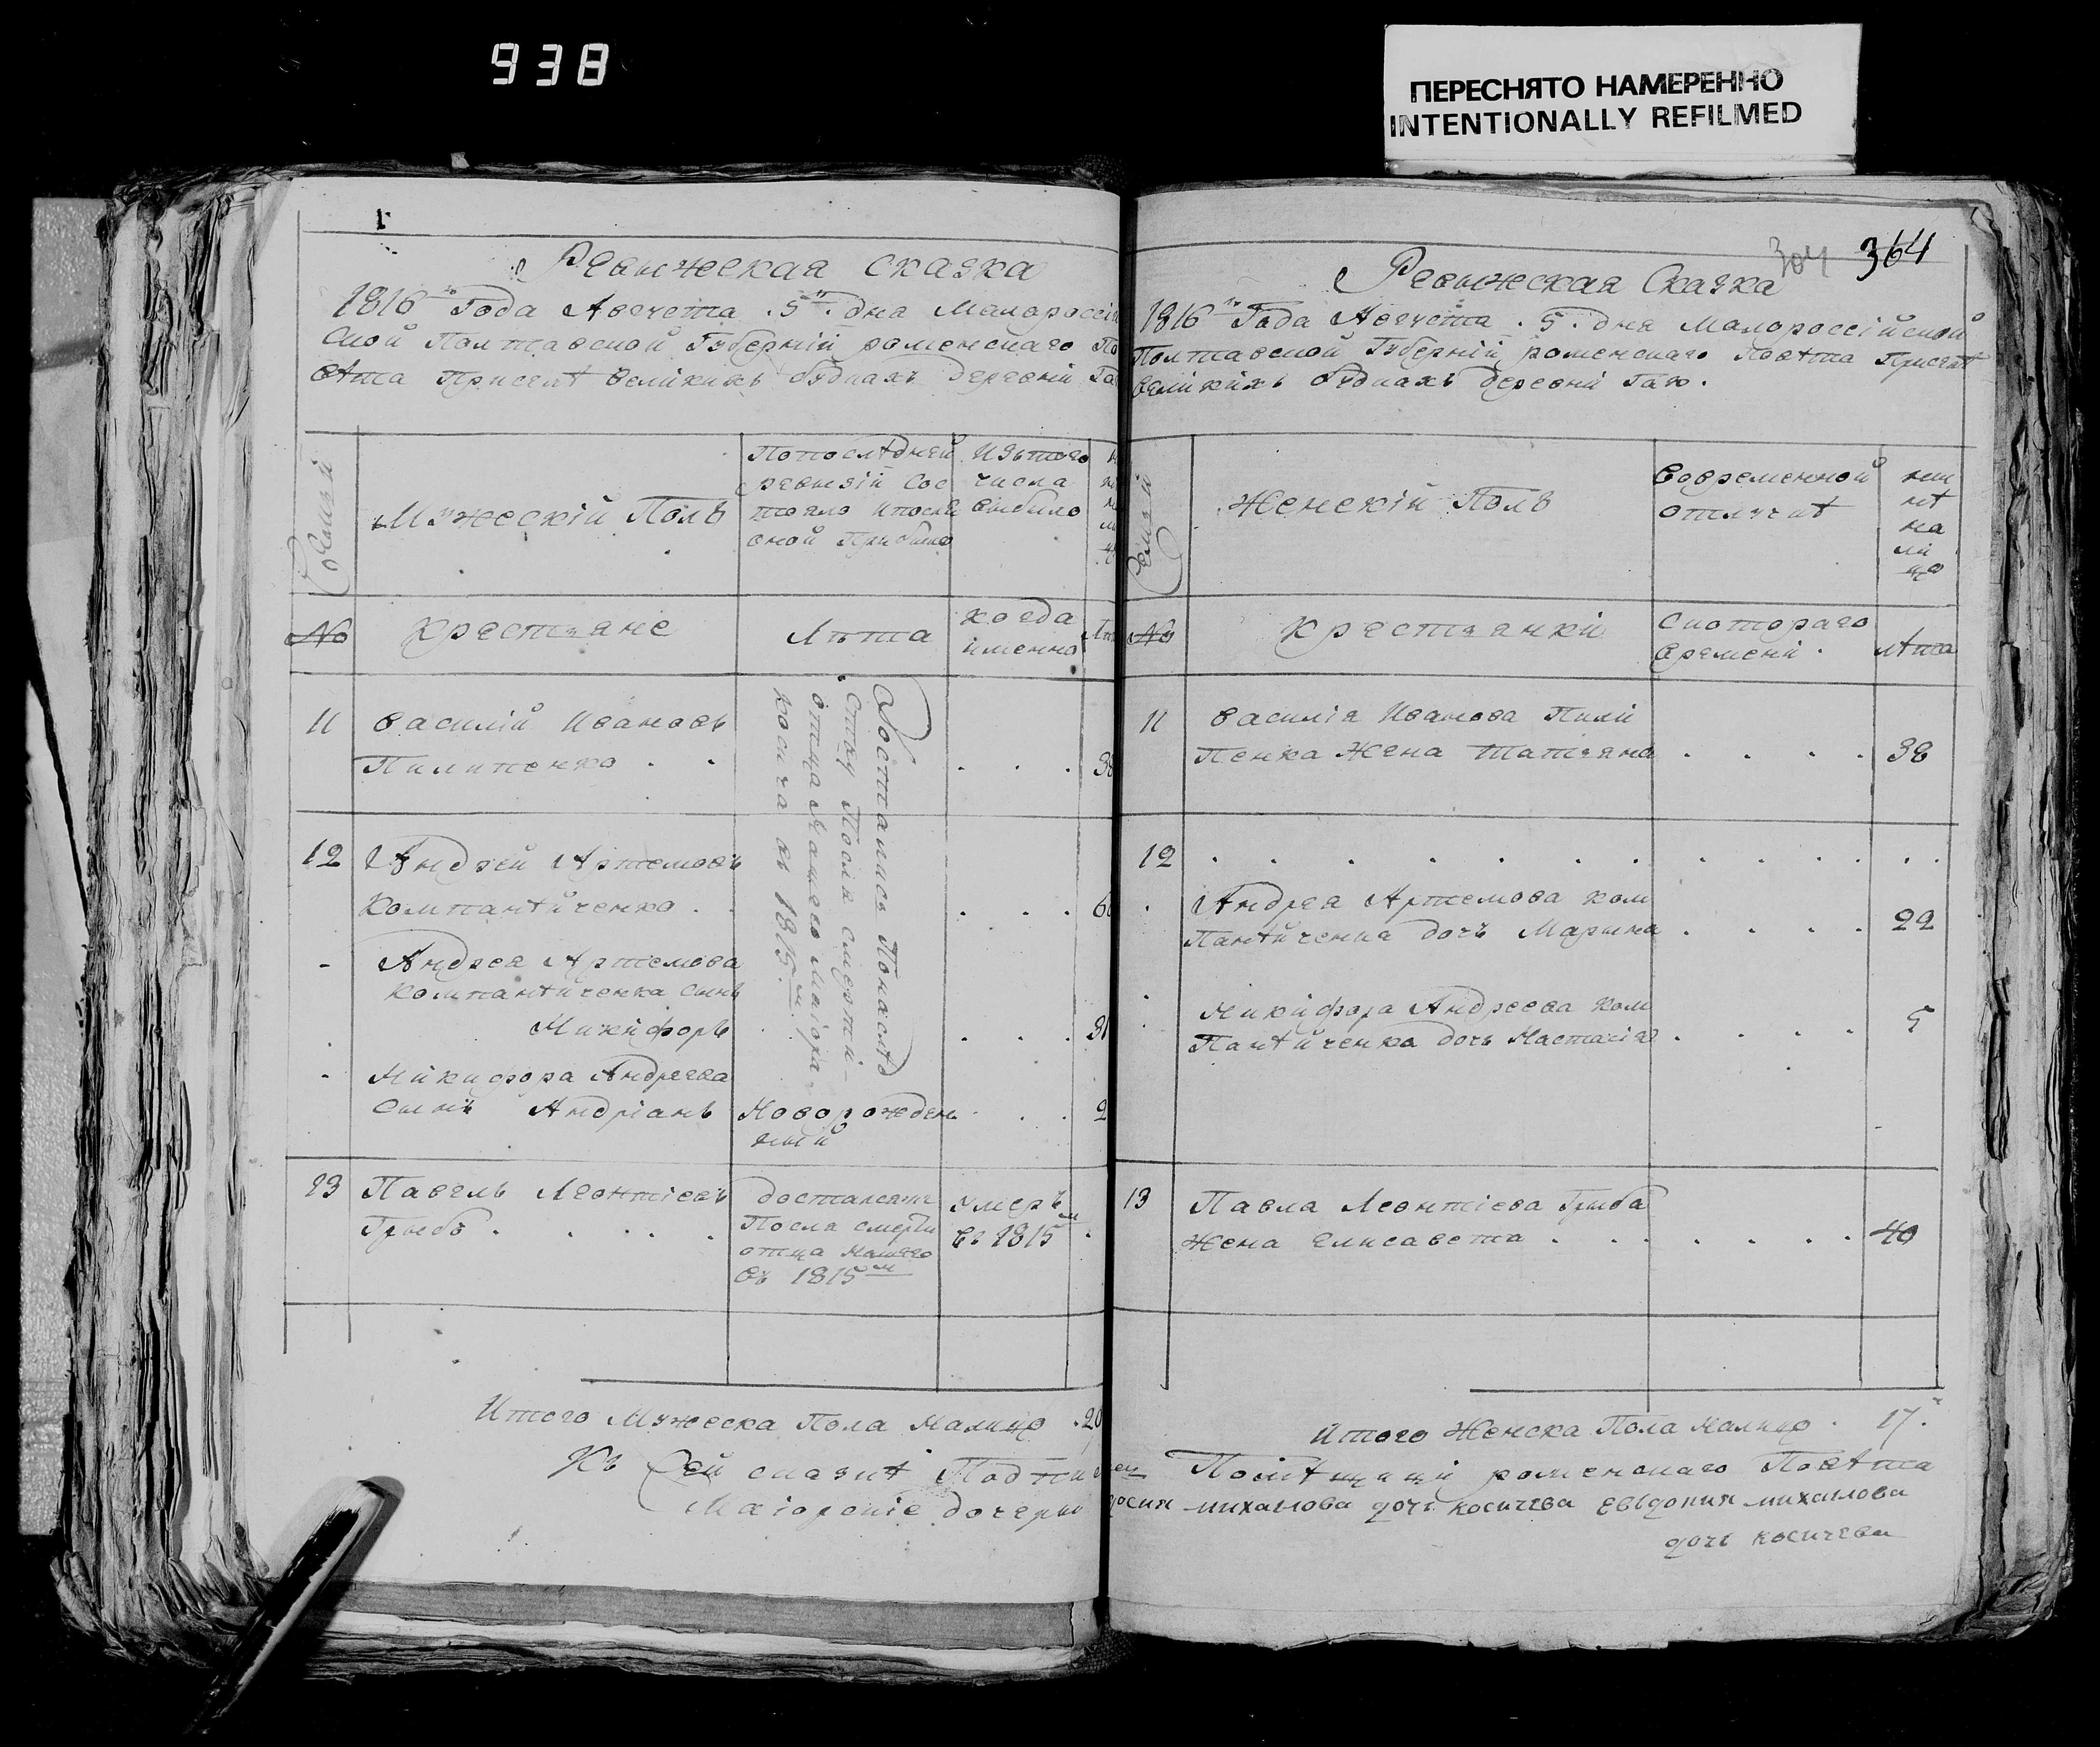 938
ПЕРЕСНЯТО НАМЕРЕННО
INTENTIONALLY REFILMED
Ревижская сказка
1816го Года Августа . 5го . дня Малороссій
ской Полтавской Губерній роменскаго По
вѣта Приселѣ великихъ будкахъ деревни Га
Мужескій Полъ
Попослѣдней
ревизій Сос
тояло ипослѣ
оной Прибыло
Изътого
числа
выбыло
№
Крестьяне
Лѣта
когда
именно
11
василій Ивановъ
Пилипенко . .
Достались Понаслѣд
ству После смерти
отца Нашего Маіора
Косича въ 1815м.
12
Андрей Артемовъ
Компанѣйченко .
Андрея Артемова
Компанѣйченка сынъ
Никифоръ
Никифора Андреева
сынъ Андріанъ
Новорожден
ный
2
13
Павелъ Леонтіевъ
Грибъ . . . . .
достался
После смерти
отца Нашего
въ 1815м
умеръ
въ 1815м
Итого Мужеска Пола Налицо . 20
Къ Сей сказкѣ
Маіорскіе дочери
304 364
Ревижская Сказка
1816го Года Августа . 5 . дня Малороссійской
Полтавской Губерній роменскаго Повѣта Приселѣ
великихъ будкахъ деревни Гаю .
Семьи
Женскій Полъ
Вовременной
отлучкѣ
нын
нѣ
на
ли
цо
№
Крестьянки
Скотораго
времени .
лѣта
11
василія Иванова Пили
Пенка Жена Татьяна . . . . 38
12
Андрея Артемова ком
Панѣйченка дочь Марина . . . . 22
Никифора Андреева ком
Панѣйченка дочь Настасія . . . . 5
13
Павла Леонтіева Гриба
Жена Елисавета . . . . . . 40
Итого Женска Пола Налицо . 17.
Помѣщицы роменскаго Повѣта
михаилова дочь косичева евъдокия михаилова
дочь косичева